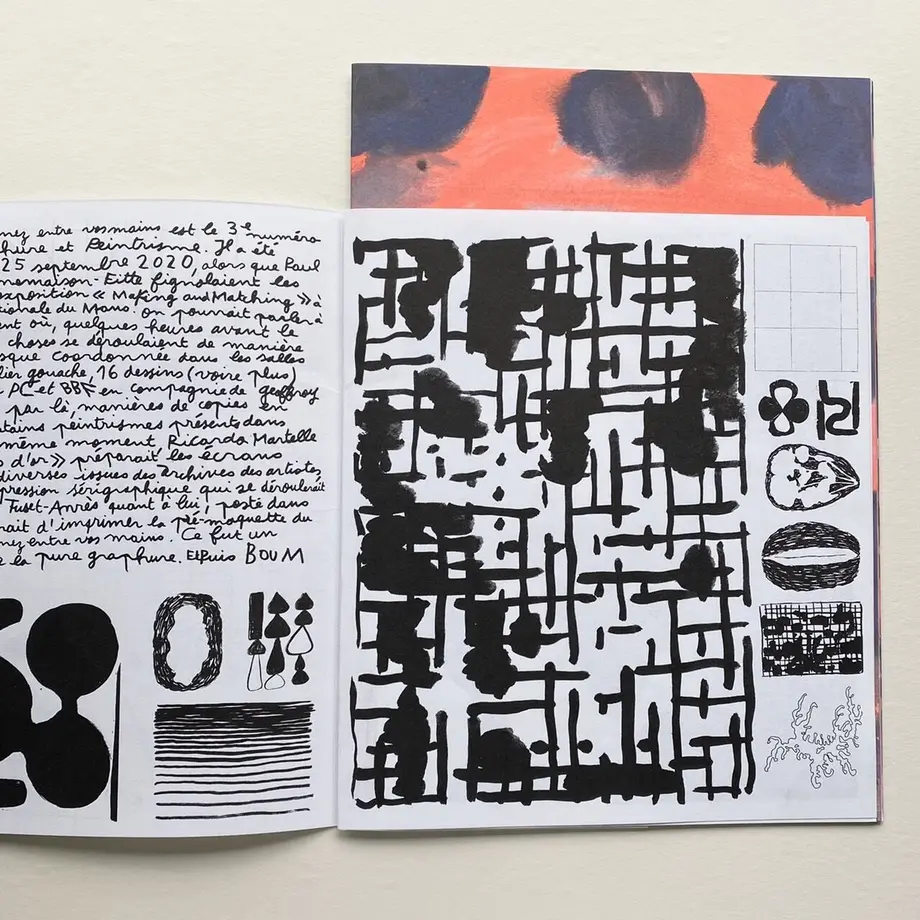 nez entre vos mains est le 3e numéro
hure et Peintrisme. Il a été
25 septembre 2020, alors que Paul
nemaison-Eitle fignolaient les
exposition « Making and Matching » à
ionale du Mans. On pourrait parler à
ent où, quelques heures avant le
choses se déroulaient de manière
sque coordonnée dans les salles
lier gouache, 16 dessins (voire plus)
PC et BBE en compagnie de Geoffroy
par là, manières de copies en
tains peintrismes présents dans
même moment, Ricardo Martelle
s d'or » préparait les écrans
diverses issues des archives des artistes,
pression sérigraphique qui se déroulerait
Fuset-Anrès quant à lui, posté dans
rait d'imprimer la pré-maquette du
nez entre vos mains. Ce fut un
e la pure graphure. Et puis BOUM